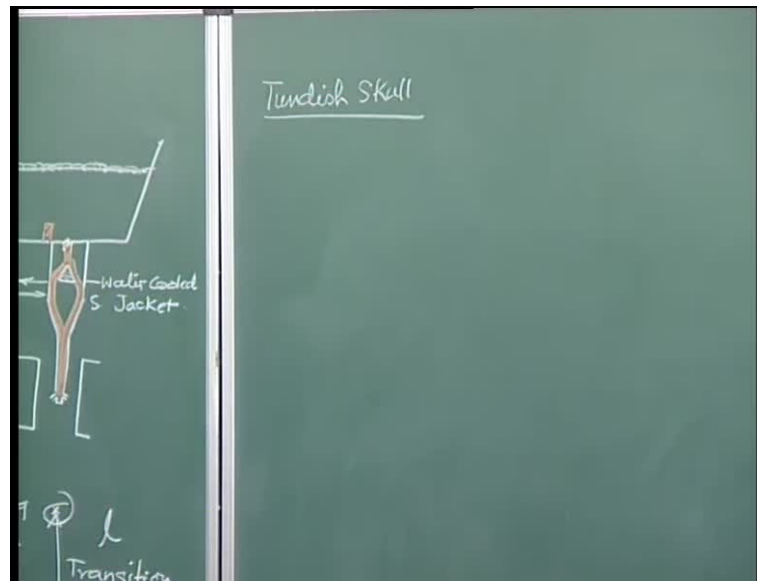 Tundish Skull
Water Cooled
S Jacket.
l
Transition